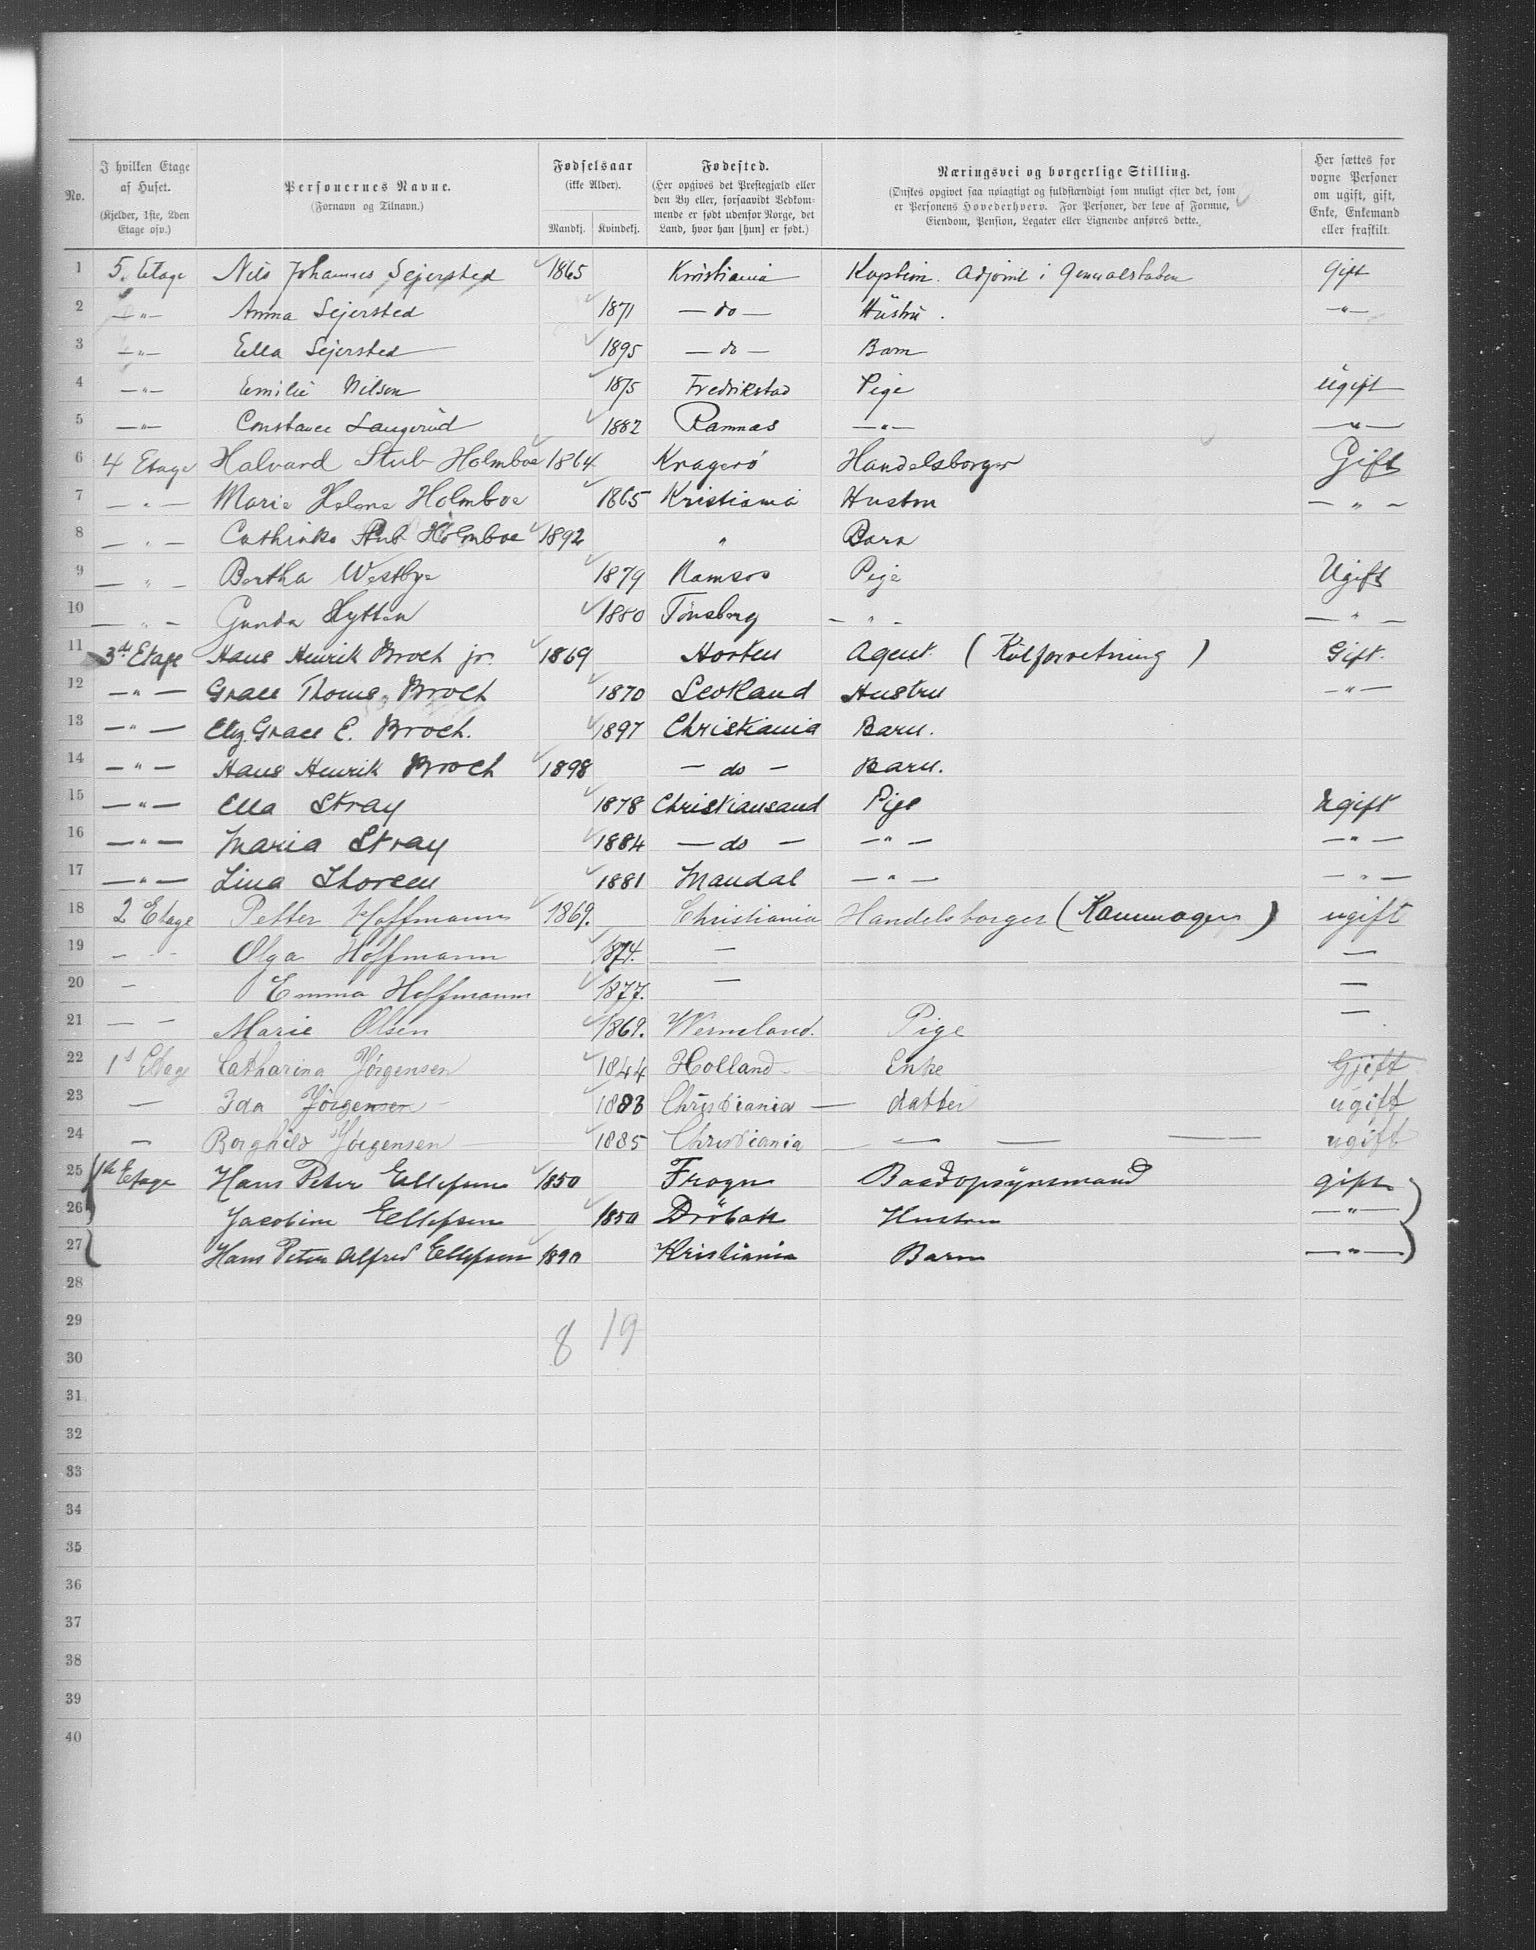 No.
I hvilken Etage af Huset. (Kjelder, 1ste, 2den Etage osv.)
Personernes Navne. (Fornavn og Tilnavn.)
Fødselsaar (ikke Alder). Mandkj. Kvindekj.
Fødested. (Her opgives det Prestegjæld eller den By eller, forsaavidt Vedkommende er født udenfor Norge, det Land, hvor han [hun] er født.)
Næringsvei og borgerlige Stilling. (Ønskes opgivet saa nøiagtigt og fuldstændigt som muligt efter det, som er Personens Hovederhverv. For Personer, der leve af Formue, Eiendom, Pension, Legater eller Lignende anføres dette.)
Her sættes for voxne Personer om ugift, gift, Enke, Enkemand eller fraskilt.
1 5. Etage Nils Johannes Sejersted 1865 Kristiania Kaptein. Adjoint i Generalstaben Gift
2 —"— Anna Sejersted 1871 — do — Hüstru. —"—
3 —"— Ella Sejersted 1895 — do — Barn
4 —"— Emilie Nilsen 1875 Fredrikstad Pige Ugift
5 —"— Constance Langerud 1882 Ramnæs —"— —"—
6 4 Etage Halvard Stub Holmboe 1864 Kragerö Handelsborger Gift
7 —"— Marie Helene Holmboe 1865 Kristiania Hustru —"—
8 —"— Cathinka Stub Holmboe 1892 " Barn
9 —"— Bertha Westbye 1879 Namsos Pige Ugift
10 —"— Gunda Hytten 1880 Tønsberg —"— —"—
11 3de Etage Hans Henrik Broch jr. 1869 Horten Agent (Kulforretning) Gift.
12 —"— Grace Thoms Broch 1870 Scotland Hustru —"—
13 —"— Eliz. Grace E. Broch. 1897 Christiania Barn.
14 —"— Hans Henrik Broch 1898 — do — Barn.
15 —"— Ella Stray 1878 Christiansand Pige Ugift
16 —"— Maria Stray 1884 — do — —"— —"—
17 —"— Lina Thoresen 1881 Mandal —"— —"—
18 2 Etage Petter Hoffmann 1869. Christiania Handelsborger (Kammager) ugift
19 — " Olga Hoffmann 1874. — —
20 — Emma Hoffmann 1877. — —
21 — — Marie Olsen 1869. Wermeland. Pige —
22 1st Etage Catharina Jørgensen 1844 Holland Enke Gjift
23 — Ida Jørgensen 1883 Christiania — datter ugift
24 — Borghild Jørgensen 1885 Christiania — — — ugift
25 1ste Etage Hans Peter Ellefsen 1850 Frogn Baadopsynsmand gift
26 Jacobine Ellefsen 1850 Dröbak Hustru —"—
27 Hans Peter Alfred Ellefsen 1890 Kristiania Barn —"—
28
29 8 19
30
31
32
33
34
35
36
37
38
39
40